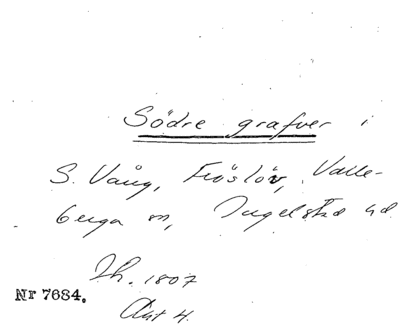 Södre grafver i
S. Vång, Fröslöv, Valle-
berga sn, Ingelstad hd
Th. 1807
Nr 7684.
Akt 4.